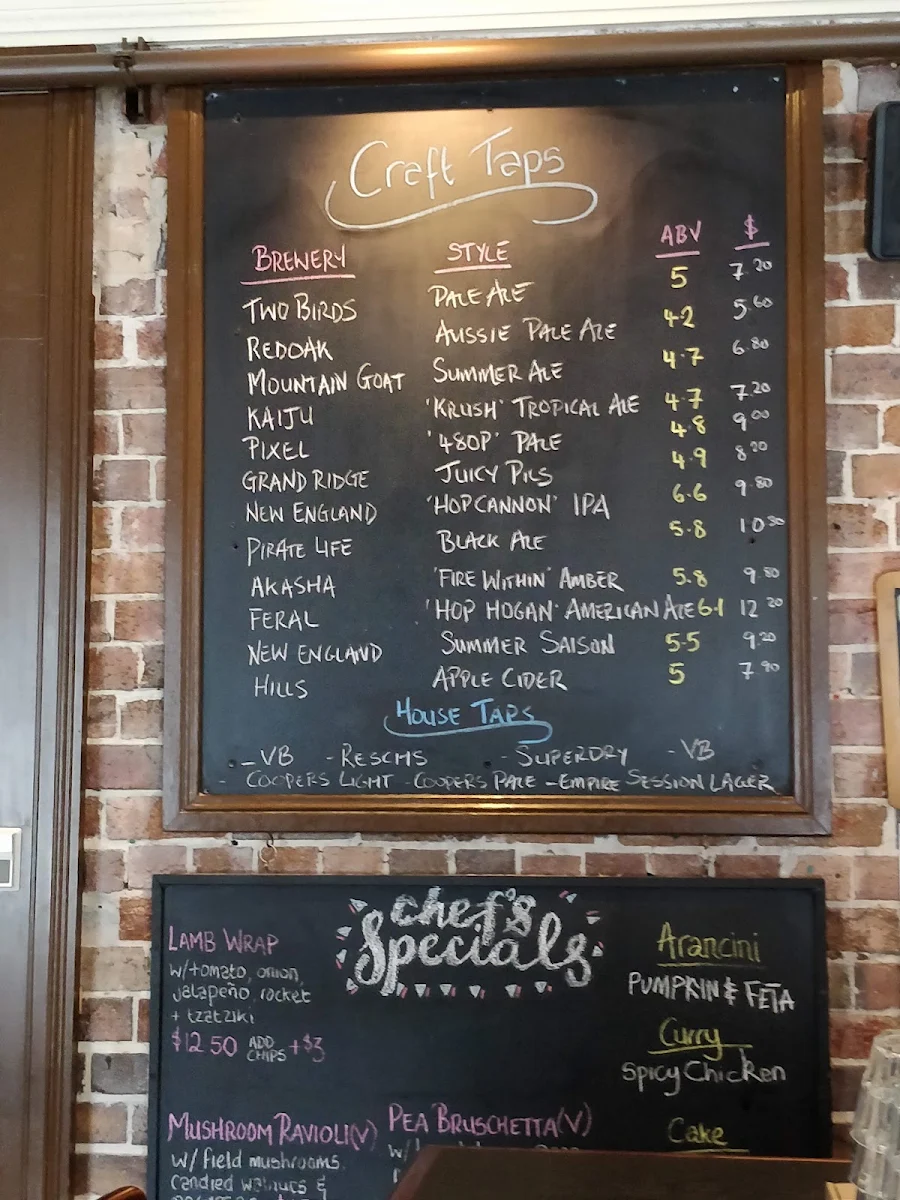 Craft Taps
BREWERY STYLE ABV $
TWO BIRDS PALE ALE 5 7.20
REDOAK AUSSIE PALE ALE 4.2 5.60
MOUNTAIN GOAT SUMMER ALE 4.7 6.80
KAIJU 'KRUSH' TROPICAL ALE 4.7 7.20
PIXEL '480P' PALE 4.8 9.00
GRAND RIDGE JUICY PILS 4.9 8.20
NEW ENGLAND 'HOPCANNON' IPA 6.6 9.80
PIRATE LIFE BLACK ALE 5.8 10.30
AKASHA 'FIRE WITHIN' AMBER 5.8 9.80
FERAL 'HOP HOGAN' AMERICAN ALE 6.1 12.20
NEW ENGLAND SUMMER SAISON 5.5 9.20
HILLS APPLE CIDER 5 7.90
HOUSE TAPS
- VB - RESCHS - SUPERDRY - VB
- COOPERS LIGHT - COOPERS PALE - EMPIRE SESSION LAGER
chef's
Specials
LAMB WRAP
w/tomato, onion,
jalapeño, rocket
+ tzatziki
$12.50 ADD CHIPS +$3
Arancini
PUMPKIN & FETA
Curry
Spicy Chicken
Cake
MUSHROOM RAVIOLI (V)
w/ field mushrooms,
candied walnuts &
PEA BRUSCHETTA (V)
w/